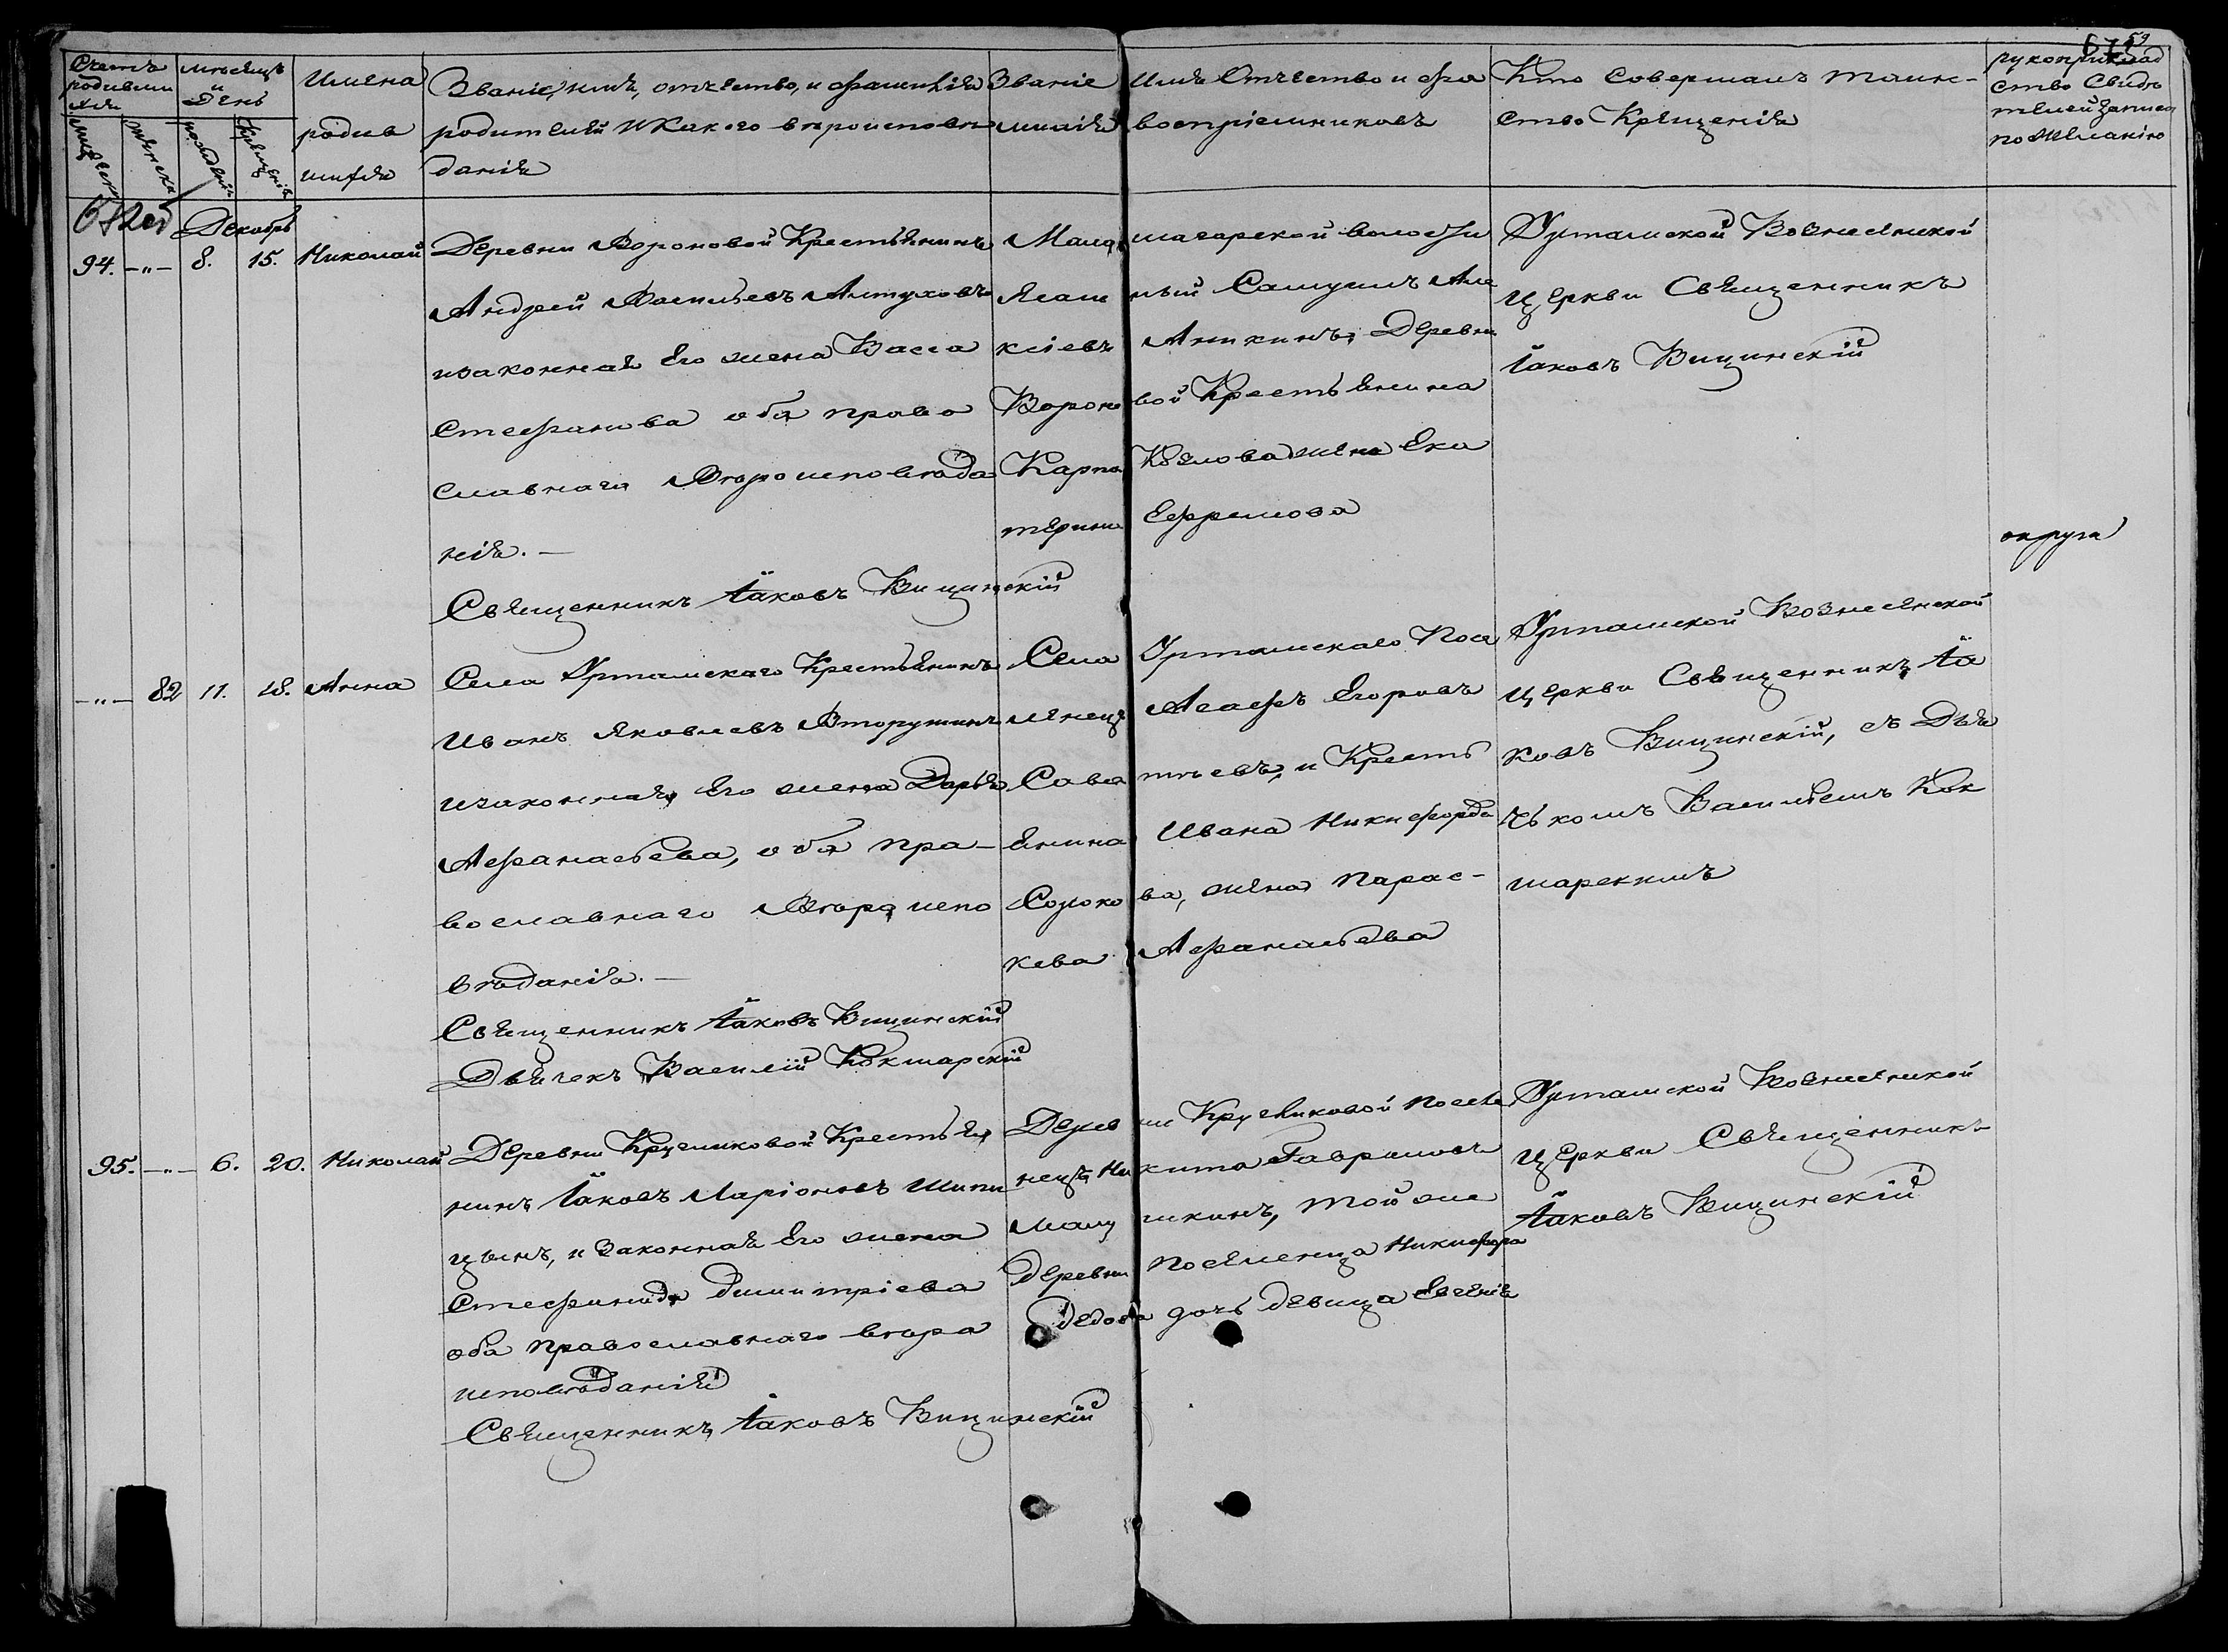 59
Счетъ родившихся
мѣсяцъ и День
Имена родившихся
Званіе, имя, отчество, и фамилія
родителей и Какого вѣроисповѣ
данія
Званіе Имя Отчество и фа
милія воспріемниковъ
Кто Совершалъ Таин-
ство Крещенія
рукоприклад
ство Свидѣ
телей записи
по Желанію
мужеска
женска
рожденія
крещенія
Декабрь
94. -"- 8. 15. Николай
Деревни Вороновой Крестьянинъ
Андрей Васильевъ Алтуховъ
изаконная Его жена Васса
Стефанова оба право
славнаго Вѣроисповѣда
нія. —
Священникъ Іаковъ Вицинскій
волости
Ясаш ный Самуилъ Але
ксіевъ Аникинъ, Деревни
Вороно вой Крестьянина
Карпа Козлова жена Ека
терина Ефремова
Уртамской Вознесенской
Церкви Священникъ
Іаковъ Вицинскій
округа
-"- 82 11. 18. Анна
Села Уртамскаго Крестьянинъ
Иванъ Яковлевъ Вторушинъ
изаконная Его жена Дарья
Афанасьева, оба пра-
вославнаго Вѣроиспо
вѣданія. —
Священникъ Іаковъ Вицинскій
Дьячекъ Василій Кокшарскій
Села Уртамскаго Посе
ленецъ Асафъ Егоровъ
Саве тьевъ, и Кресть
янина Ивана Никифорова
Соро ко ва, жена Парас-
кева Афанасьева
Уртамской Вознесенской
Церкви Священникъ Іа
ковъ Вицинскій, съ Дья
чькомъ Васильемъ Кок
шарскимъ
95. -"- 6. 20. Николай
Деревни Кругликовой Крестья
нинъ Іаковъ Ларіоновъ Шипи
цынъ, и Законная Его жена
Стефанида Димитріева
оба православнаго вѣро
исповѣданія
Священникъ Іаковъ Вицинскій
Дерев ни Кругликовой посе
ленецъ Ни кита Гавриловъ
шкинъ, той же
деревни поселенца Никифора
Дедова дочь девица Евгенія
Уртамской Вознесенской
Церкви Священникъ
Іаковъ Вицинскій